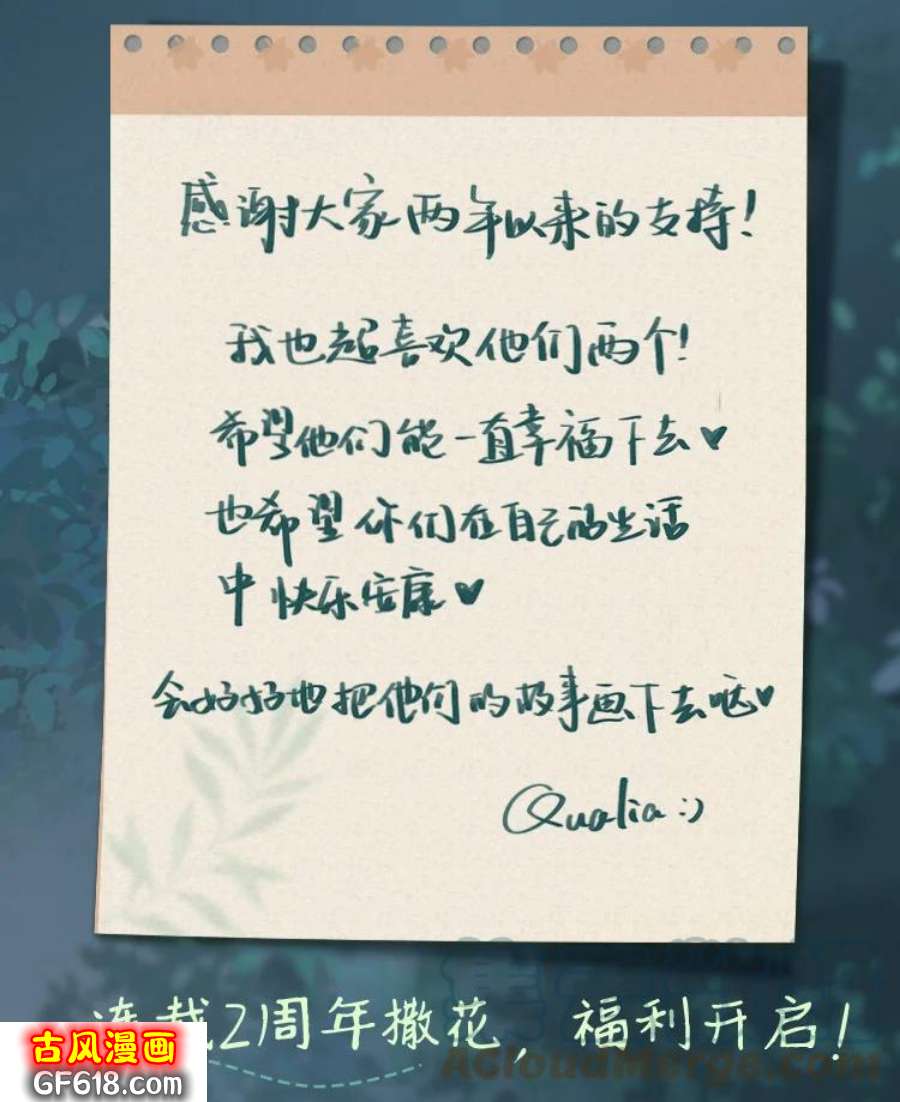 感谢大家两年以来的支持!
我也超喜欢他们两个!
希望他们能一直幸福下去♥
也希望你们在自己的生活
中快乐安康♥
会好好地把他们的故事画下去哒♥
Qualia:)
连载2周年撒花,福利开启!
古风漫画
GF618.com
ACloudMerge.com